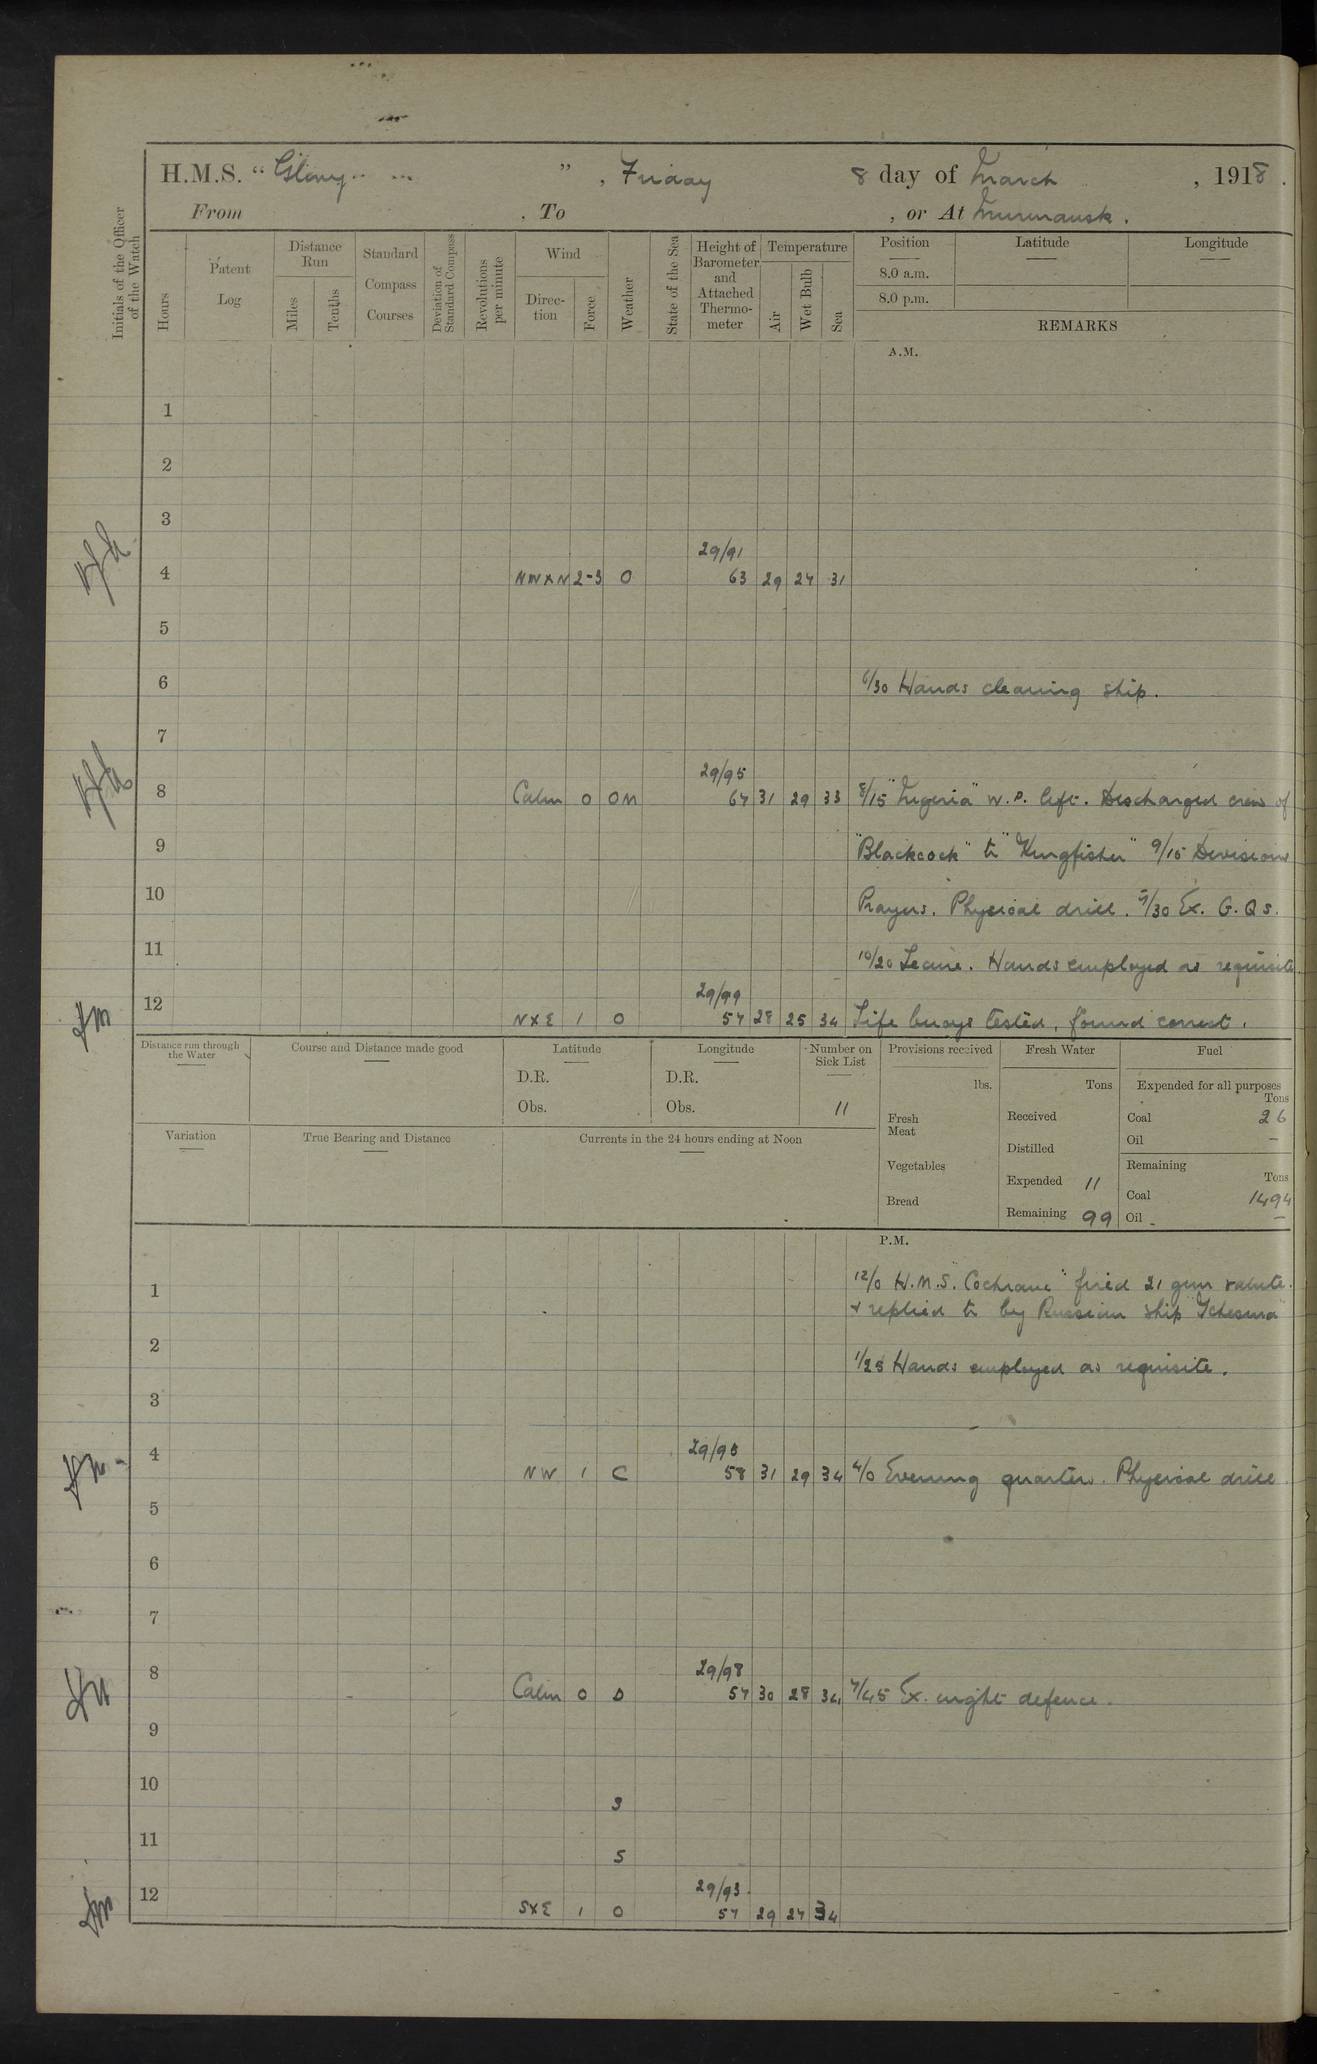 H.M.S. "Glory", Friday 8 day of March, 1918.
From , To , or At Murmansk.
Initials of the Officer of the Watch
Hours
Patent Log
Distance Run
Miles
Tenths
Standard Compass Courses
Deviation of Standard Compass
Revolutions per minute
Wind
Direction
Force
Weather
State of the Sea
Height of Barometer and Attached Thermometer
Temperature
Air
Wet Bulb
Sea
Position Latitude Longitude
8.0 a.m.
8.0 p.m.
REMARKS
A.M.
1
2
3
29/91
4 NWxN 2-3 O 63 29 27 31
5
6 6/30 Hands cleaning ship.
7
29/95
8 Calm 0 OM 67 31 29 33 8/15 "Nigeria" W.P. left. Discharged crew of
9 "Blackcock" to "Kingfisher" 9/15 Divisions
10 Prayers. Physical drill. 9/30 Ex. G.Qs.
11 10/20 Leave. Hands employed as requisite
29/99
12 NxE 1 O 57 28 25 34 Life buoys tested, found correct.
Distance run through the Water
Course and Distance made good
Latitude
D.R.
Obs.
Longitude
D.R.
Obs.
Number on Sick List
11
Provisions received
lbs.
Fresh Meat
Vegetables
Bread
Fresh Water
Tons
Received
Distilled
Expended 11
Remaining 99
Fuel
Expended for all purposes
Tons
Coal 26
Oil –
Remaining
Tons
Coal 1494
Oil –
Variation
True Bearing and Distance
Currents in the 24 hours ending at Noon
P.M.
12/0 H.M.S. "Cochrane" fired 21 gun salute
1 & replied to by Russian ship "Tchesma"
2 1/25 Hands employed as requisite.
3
29/98
4 NW 1 C 58 31 29 34 4/0 Evening quarters. Physical drill
5
6
7
29/98
8 Calm 0 O 57 30 28 34 7/45 Ex. night defence.
9
10 S
11 S
29/93
12 SxE 1 O 57 29 27 34